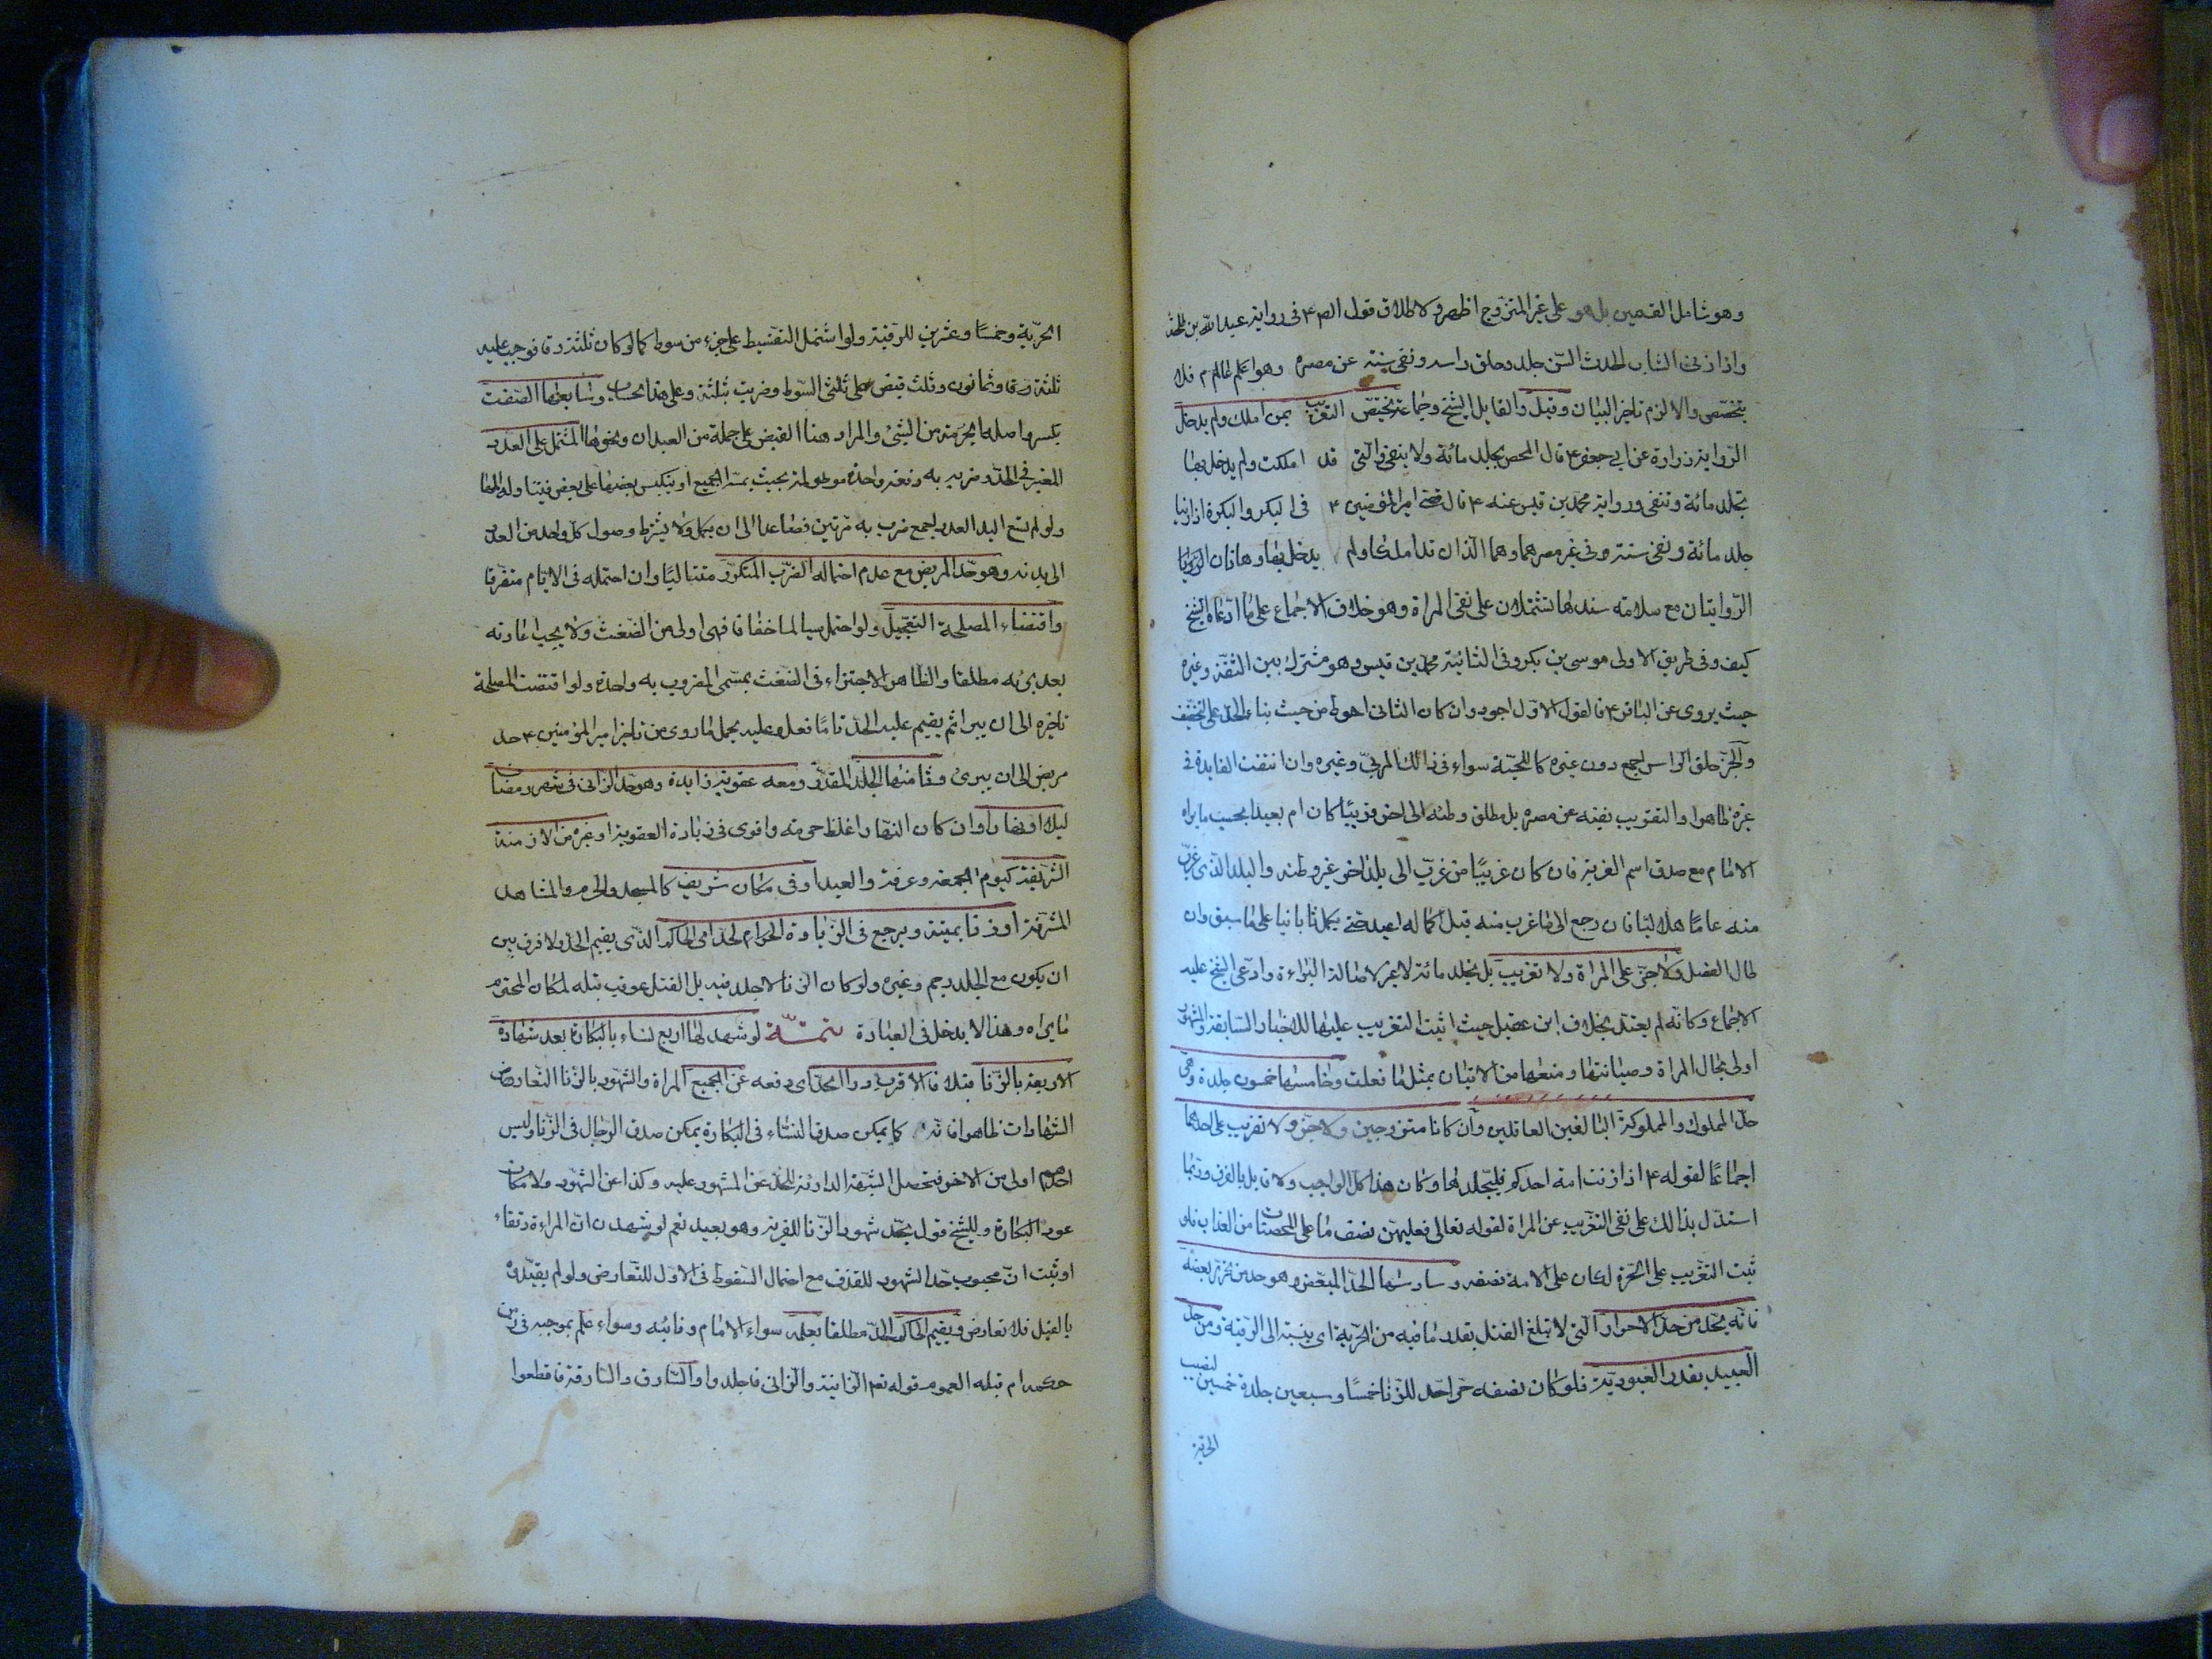 وهو شامل القسمين بل هو على غير المتزوج اظهر ولاطلاق قول الص ۴ فى رواية عبد الله بن طلحة
واذا زنى الشاب الحدث السن جلد وحلق راسه ونفى سنته عن مصره وهو عام فلا
يتخصص والا لزم تاخير البيان وقيل والقايل الشيخ وجماعة يختص التغريب بمن املك ولم يدخل
الرواية زرارة عن ابى جعفر ۴ قال المحصن يجلد مائة ولا ينفى والتى قد املكت ولم يدخل بها
تجلد مائة وتنفى ورواية محمد بن قيس عنه ۴ قال قضى امير المؤمنين ۴ فى البكر والبكرة اذا زنيا
جلد مائة ونفى سنة فى غير مصرهما وهما الذان قد املكا ولم يدخل بها وهاتان
الروايتان مع سلامة سندهما تشتملان على نفى المراة وهو خلاف الاجماع على ما ادعاه الشيخ
كيف وفى طريق الاولى موسى بن بكر وفى الثانية محمد بن قيس وهو مشترك بين الثقة وغيره
حيث يروى عن الباقر ۴ فالقول الاول اجود وان كان الثانى احوط من حيث بناء الحد على التخفيف
والجز حلق الراس اجمع دون غيره كاللحية سواء فى ذالك المربى وغيره وان انتفت الفايدة فى
غيره ظاهرا والتغريب نفيه عن مصره بل مطلق وطنه الى اخر قريبا كان ام بعيدا بحسب ما يراه
الامام مع صدق اسم الغربة فان كان غريبا من غرب الى بلد اخر غير وطنه والبلد الذى غرب
منه عاما هلاليا فان رجع الى ما غرب منه قبل اكماله اعيد حتى يكمل بانيا على ما سبق وان
طال الفصل ولا جز على المراة ولا تغريب بل تجلد مائة لا غير لاصالة البراءة وادعى الشيخ عليه
الاجماع وكانه لم يعتد بخلاف ابن عقيل حيث اثبت التغريب عليها للاخبار السابقة والمشهور
اولى بحال المراة وصيانتها ومنعها من الاتيان بمثل ما فعلت وخامسها خمسون جلدة وهى
حد المملوك والمملوكة البالغين العاقلين وان كانا متزوجين ولا جز ولا تغريب على احدهما
اجماعا لقوله ۴ اذا زنت امة احدكم فليجلدها وكان هذا كل الواجب ولا قايل بالفرق وربما
استدل بذالك على نفى التغريب عن المراة لقوله تعالى فعليهن نصف ما على المحصنات من العذاب فلو
ثبت التغريب على الحرة لكان على الامة نصفه وسادسها الحد المبعض وهو حد من تحرر بعضه
فانه يحد من حد الاحرار التى لا تبلغ القتل بقدر ما فيه من الحرية اى بنسبته الى الرقية ومن حد
العبيد بقدر العبودية فلو كان نصفه حرا حد للزنا خمسا وسبعين جلدة خمسين لنصيب
الحرية
الحرية وخمسا وعشرين للرقية ولو اشتمل التقسيط على جزء من سوط كما لو كان ثلثه رقا فوجب عليه
ثلثة وثمانون وثلث قبض على ثلثى السوط وضرب بثلثه وعلى هذا الحساب وسابعها الضغث
بكسر اصله الحزمة من الشئ والمراد هنا القبض على جملة من العيدان ونحوها المشتمل على العدد
المعتبر فى الحد وضربه به دفعة واحدة مولمة بحيث يمسه الجميع او ينكبس بعضها على بعض فيناله المها
ولو لم تسع اليد العدد اجمع ضرب به مرتين فصاعدا الى ان يكمل ولا يشترط وصول كل واحد من العدد
الى بدنه وهو حد المريض مع عدم احتماله الضرب المتكرر متتاليا وان احتمله فى الايام متفرقا
واقتضاء المصلحة التعجيل ولو احتمل سياطا خفافا فهى اولى من الضغث ولا يجب اعادته
بعد برئه مطلقا والظاهر الاجتزاء فى الضغث بمسمى المضروب به واحدة ولو اقتضت المصلحة
تاخيره الى ان يبرا ثم يقيم عليه الحد تاما فعل وعليه يحمل ما روى من تاخير امير المؤمنين ۴ حد
مريض الى ان يبرئ وثامنها الجلد المقدر ومعه عقوبة زايدة وهو حد الزانى فى شهر رمضان
ليلا او نهارا وان كان النهار اغلظ حرمة واقوى فى زيادة العقوبة او غيره من الازمنة
الشريفة كيوم الجمعة وعرفة والعيد او فى مكان شريف كالمسجد والحرم والمشاهد
المشرفة او زنا بميتة ويرجع فى الزيادة الى الحاكم الذى يقيم الحد ولا فرق بين
ان يكون مع الجلد رجم وغيره ولو كان الزنا لا جلد فيه بل القتل عوقب قبله لمكان المحترم
ما يراه وهذا لا يدخل فى العبارة تتمة لو شهد لها اربع نساء بالبكارة بعد شهادة
الاربعة بالزنا قبلا فالاقرب درا الحد اى دفعه عن الجميع المراة والشهود بالزنا لتعارض
الشهادات ظاهرا فانه كما يمكن صدق النساء فى البكارة يمكن صدق الرجال فى الزنا وليس
احدهما اولى من الاخر فتحصل الشبهة الدارئة للحد عن المشهود عليه وكذا عن الشهود ولامكان
عود البكارة وللشيخ قول بحد شهود الزنا للفرية وهو بعيد نعم لو شهدن ان المراءة رتقاء
او ثبت ان مجبوب حد الشهود للقذف مع احتمال السقوط فى الاول للتعارض ولو لم يقيدوه
بالقبل فلا تعارض ويقيم الحاكم الحد مطلقا بعلمه سواء الامام ونائبه وسواء علم بموجبه فى زمن
حكمه ام قبله لعموم قوله تعالى الزانية والزانى فاجلدوا والسارق والسارقة فاقطعوا